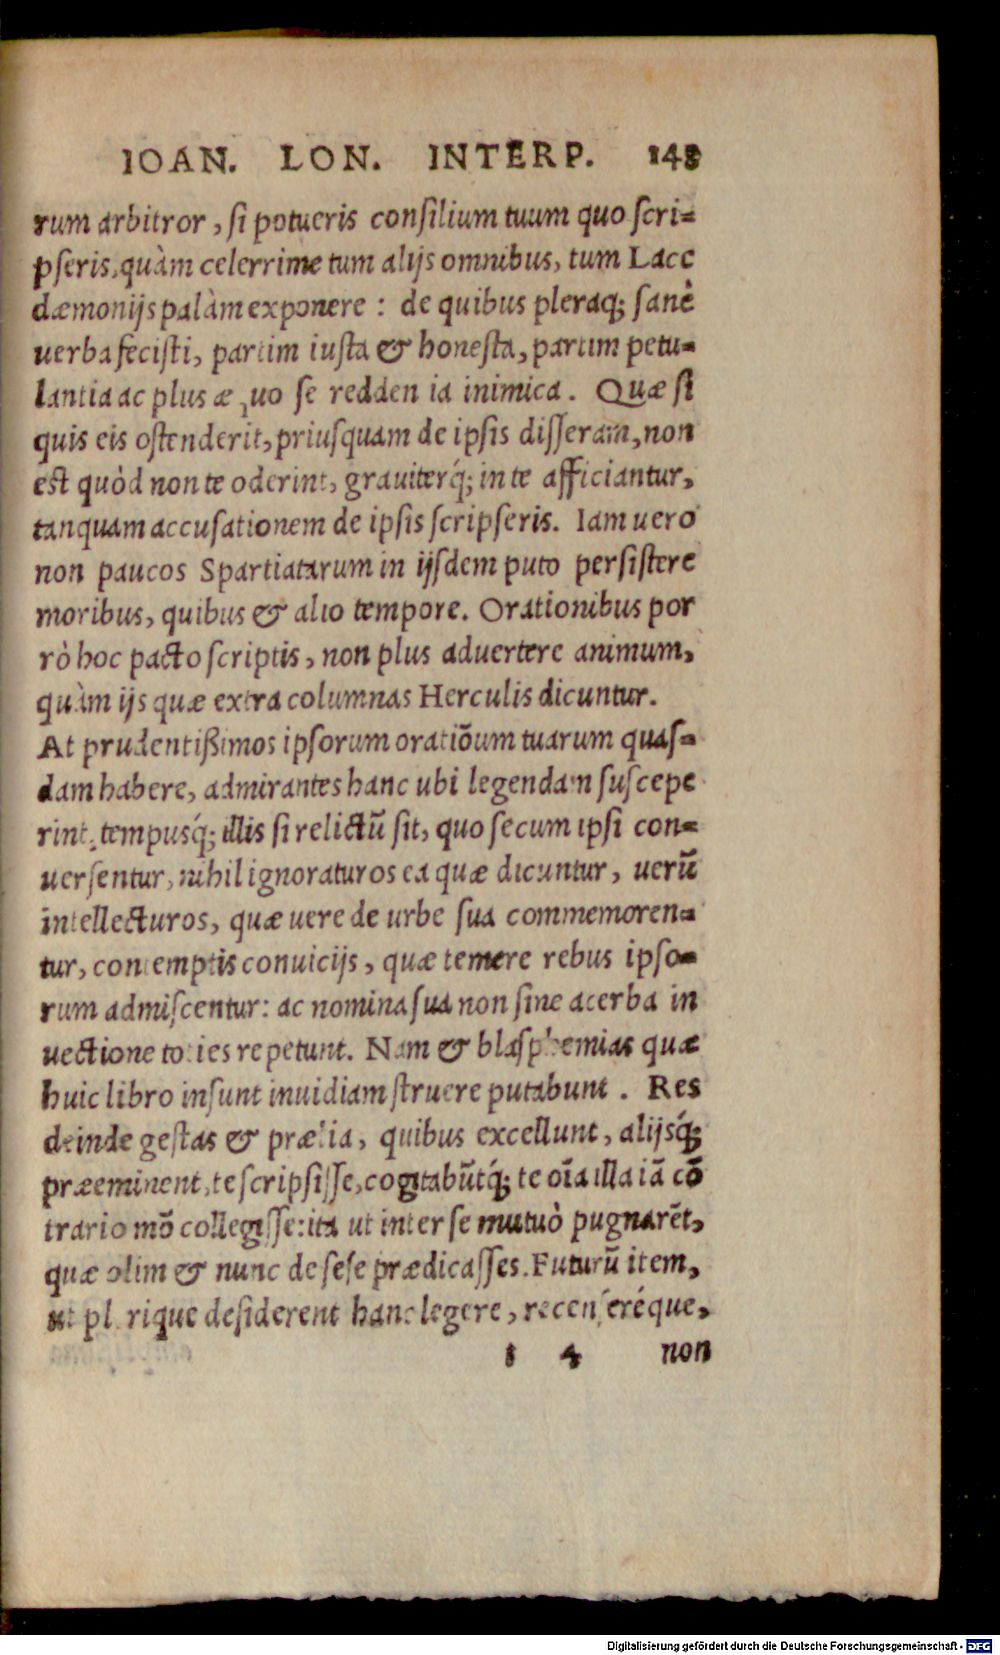 IOAN. LON. INTERP. 148
rum arbitror, si potueris consilium tuum quo scri-
pseris, quàm celerrime tum alijs omnibus, tum Lace
dæmonijs palàm exponere : de quibus pleraq; sanè
uerba fecisti, partim iusta & honesta, partim petu-
lantia ac plus æquo se redden ia inimica. Quæ si
quis eis ostenderit, priusquam de ipsis disseram, non
est quòd non te oderint, grauiterq́; in te afficiantur,
tanquam accusationem de ipsis scripseris. Iam uero
non paucos Spartiatarum in ijsdem puto persistere
moribus, quibus & alio tempore. Orationibus por
rò hoc pacto scriptis, non plus aduertere animum,
quàm ijs quæ extra columnas Herculis dicuntur.
At prudentißimos ipsorum oratiōum tuarum quas-
dam habere, admirantes hanc ubi legendam suscepe
rint, tempusq́; illis si relictū sit, quo secum ipsi con-
uersentur, nihil ignoraturos ea quæ dicuntur, uerū
intellecturos, quæ uere de urbe sua commemoren-
tur, contemptis conuicijs, quæ temere rebus ipso-
rum admiscentur: ac nomina sua non sine acerba in
uectione toties repetunt. Nam & blasphemias quæ
huic libro insunt inuidiam struere putabunt. Res
deinde gestas & prælia, quibus excellunt, alijsq́;
præeminent, te scripsisse, cogitabūtq́; te oīa illa iā cō
trario mō collegisse: ita ut inter se mutuò pugnarēt,
quæ olim & nunc de sese prædicasses. Futurū item,
ut plerique desiderent hanc legere, recenseréque,
t 4 non
Digitalisierung gefördert durch die Deutsche Forschungsgemeinschaft - DFG